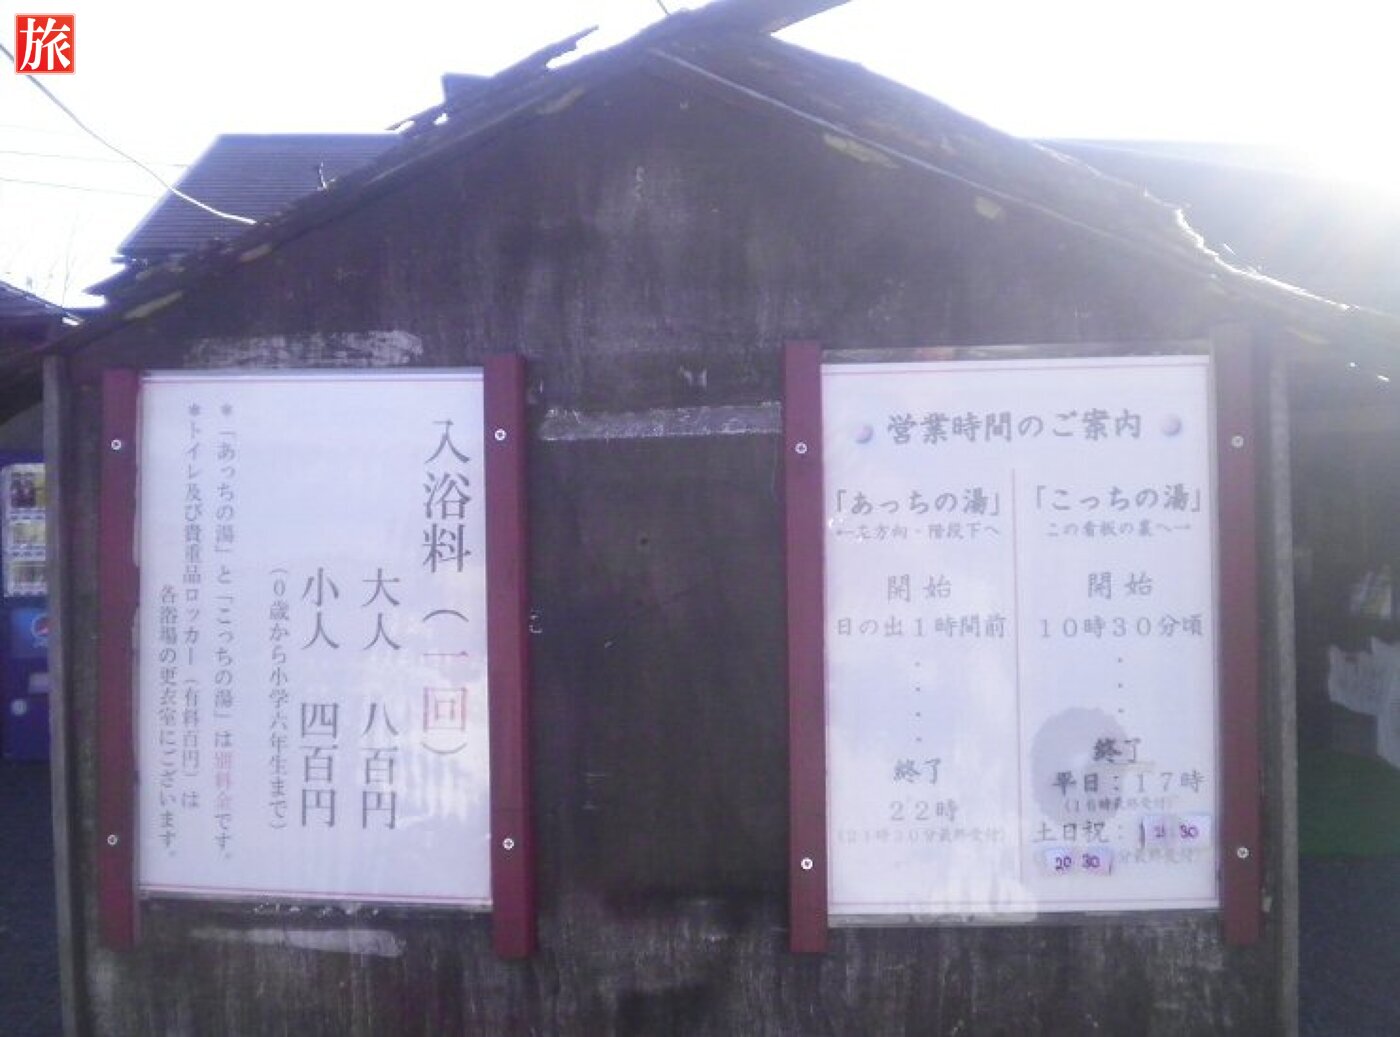 旅
入浴料（一回）
大人 八百円
小人 四百円
（０歳から小学六年生まで）
＊「あっちの湯」と「こっちの湯」は別料金です。
＊トイレ及び貴重品ロッカー（有料百円）は
各浴場の更衣室にございます。
営業時間のご案内
「あっちの湯」
←左方向・階段下へ
開始
日の出１時間前
終了
２２時
（２１時３０分最終受付）
「こっちの湯」
この看板の裏へ→
開始
１０時３０分頃
終了
平日：１７時
（１６時最終受付）
土日祝：
30
20 30
分最終受付）